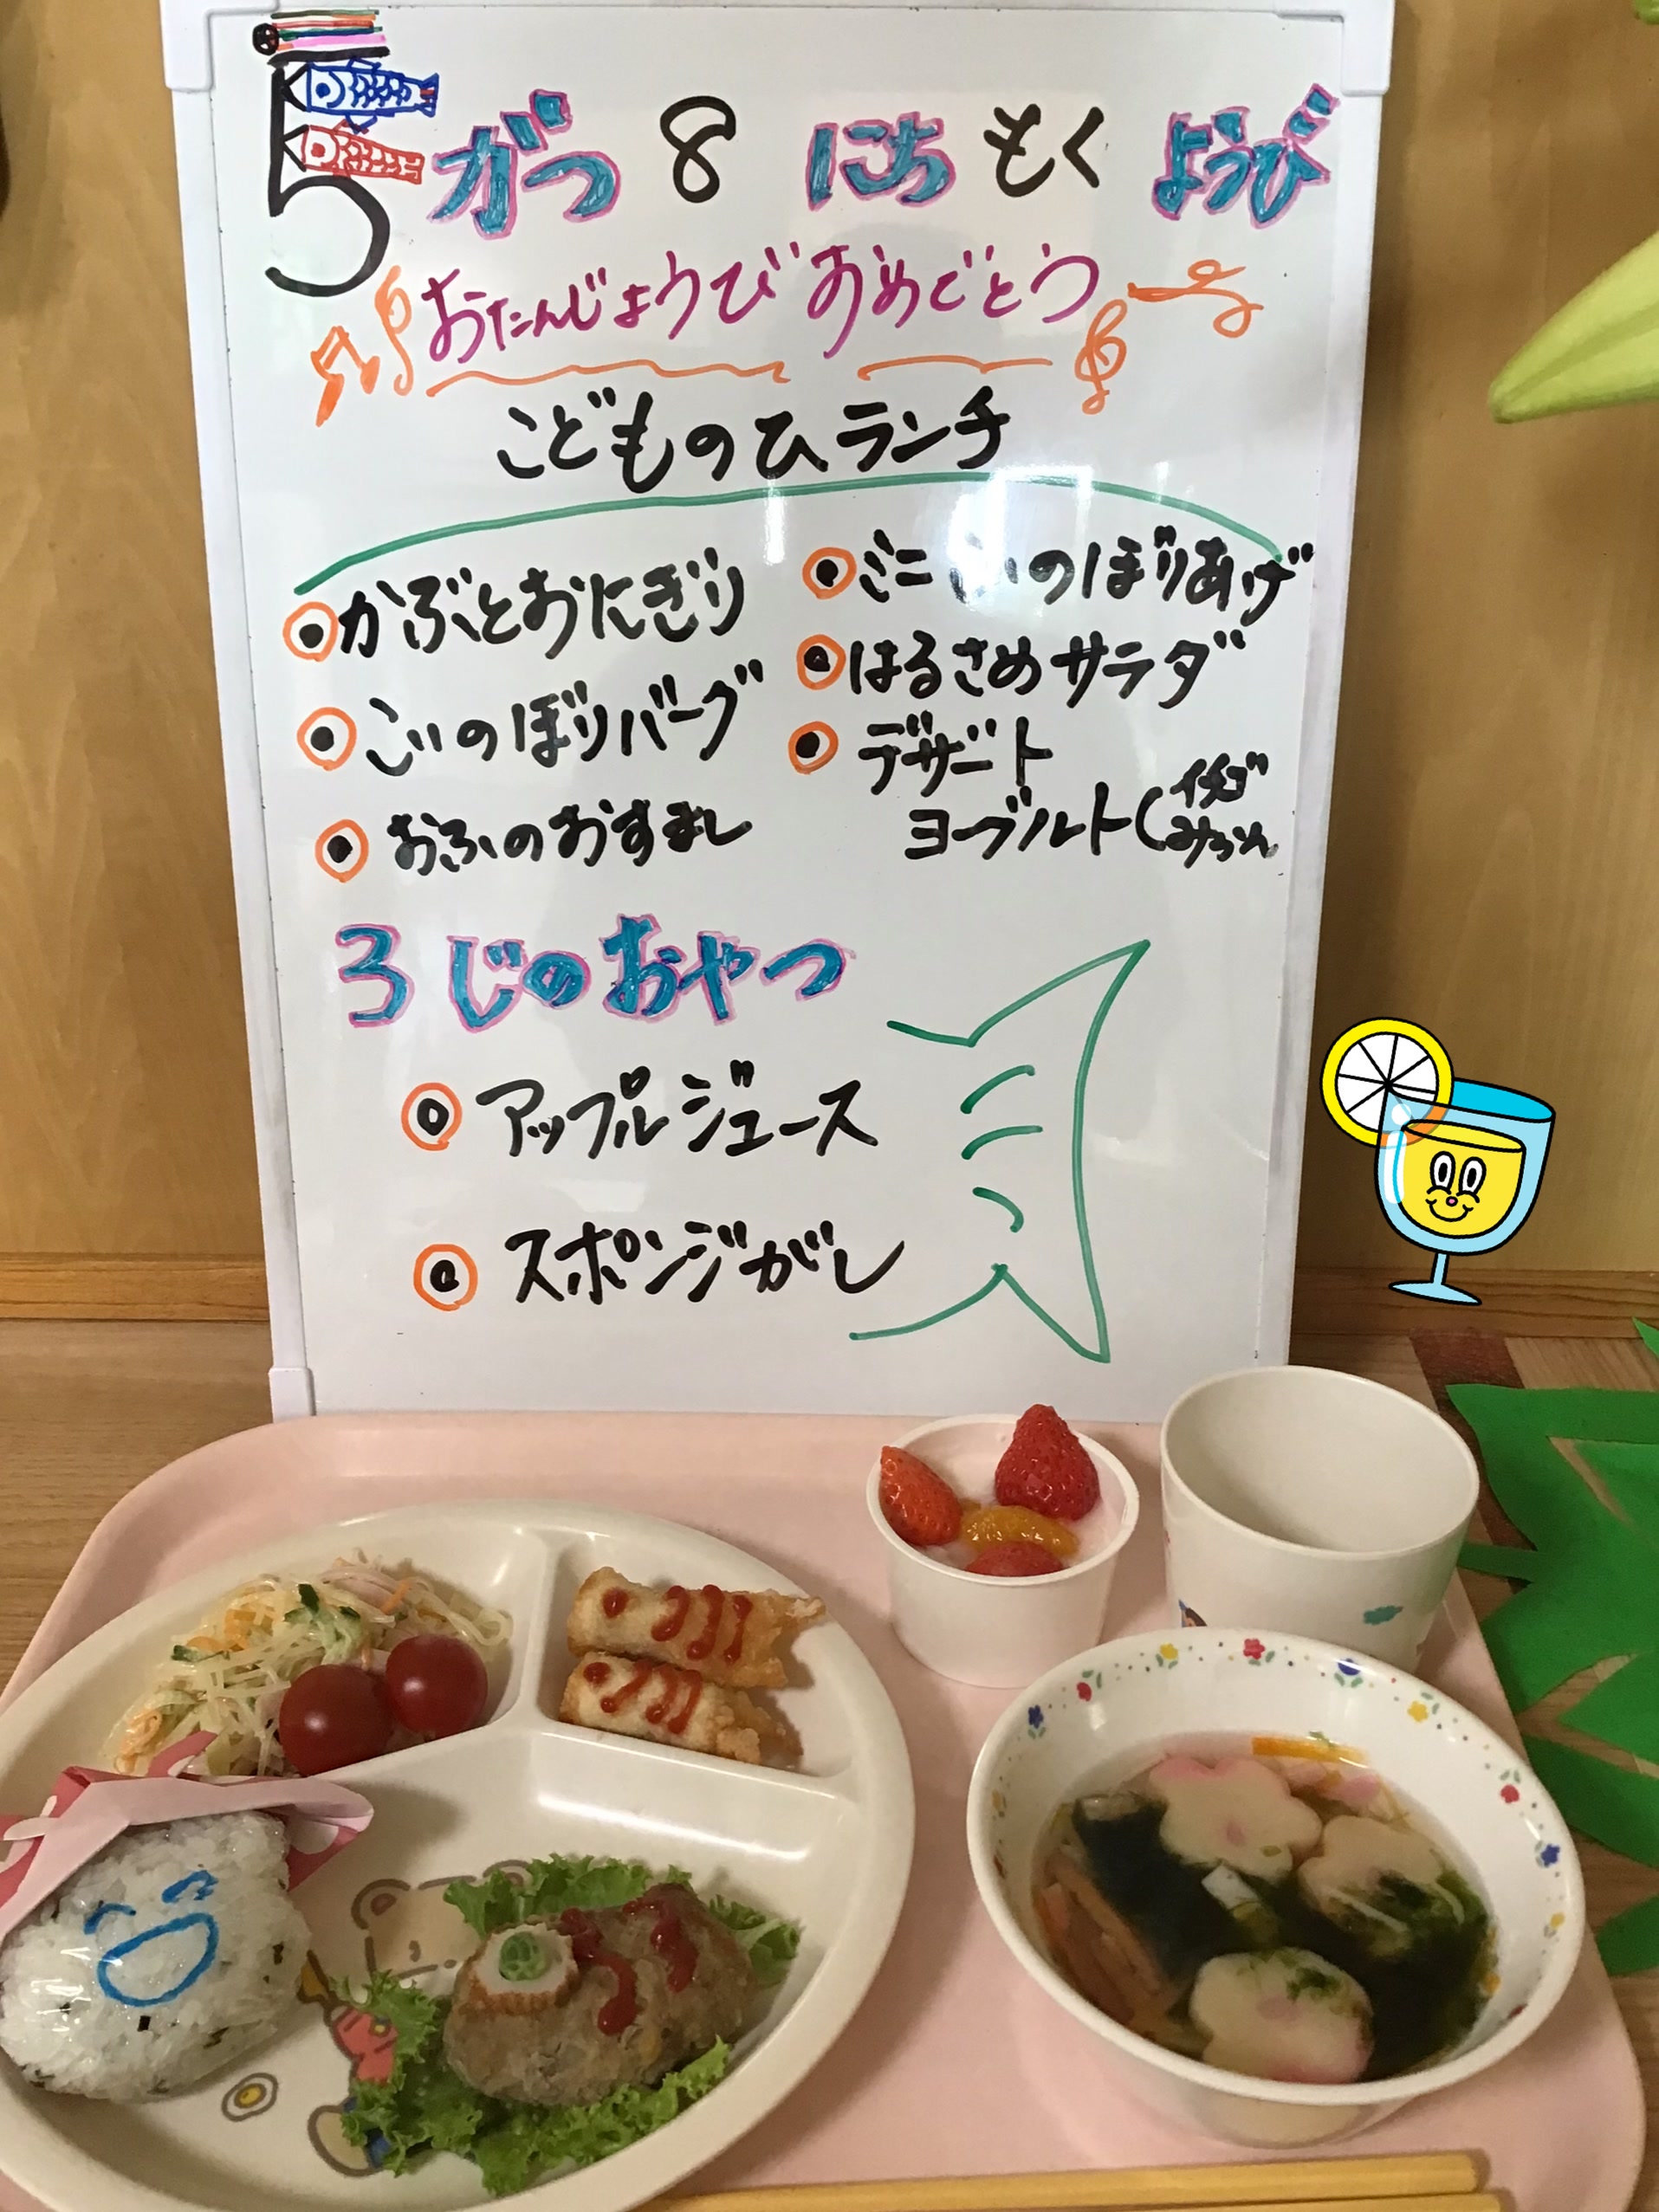 5がつ8にちもくようび
おたんじょうびおめでとう
こどものひランチ
かぶとおにぎり
こいのぼりバーグ
おふのおすまし
ミニこいのぼりあげ
はるさめサラダ
デザート
ヨーグルト(イチゴ
みかん
3じのおやつ
アップルジュース
スポンジがし